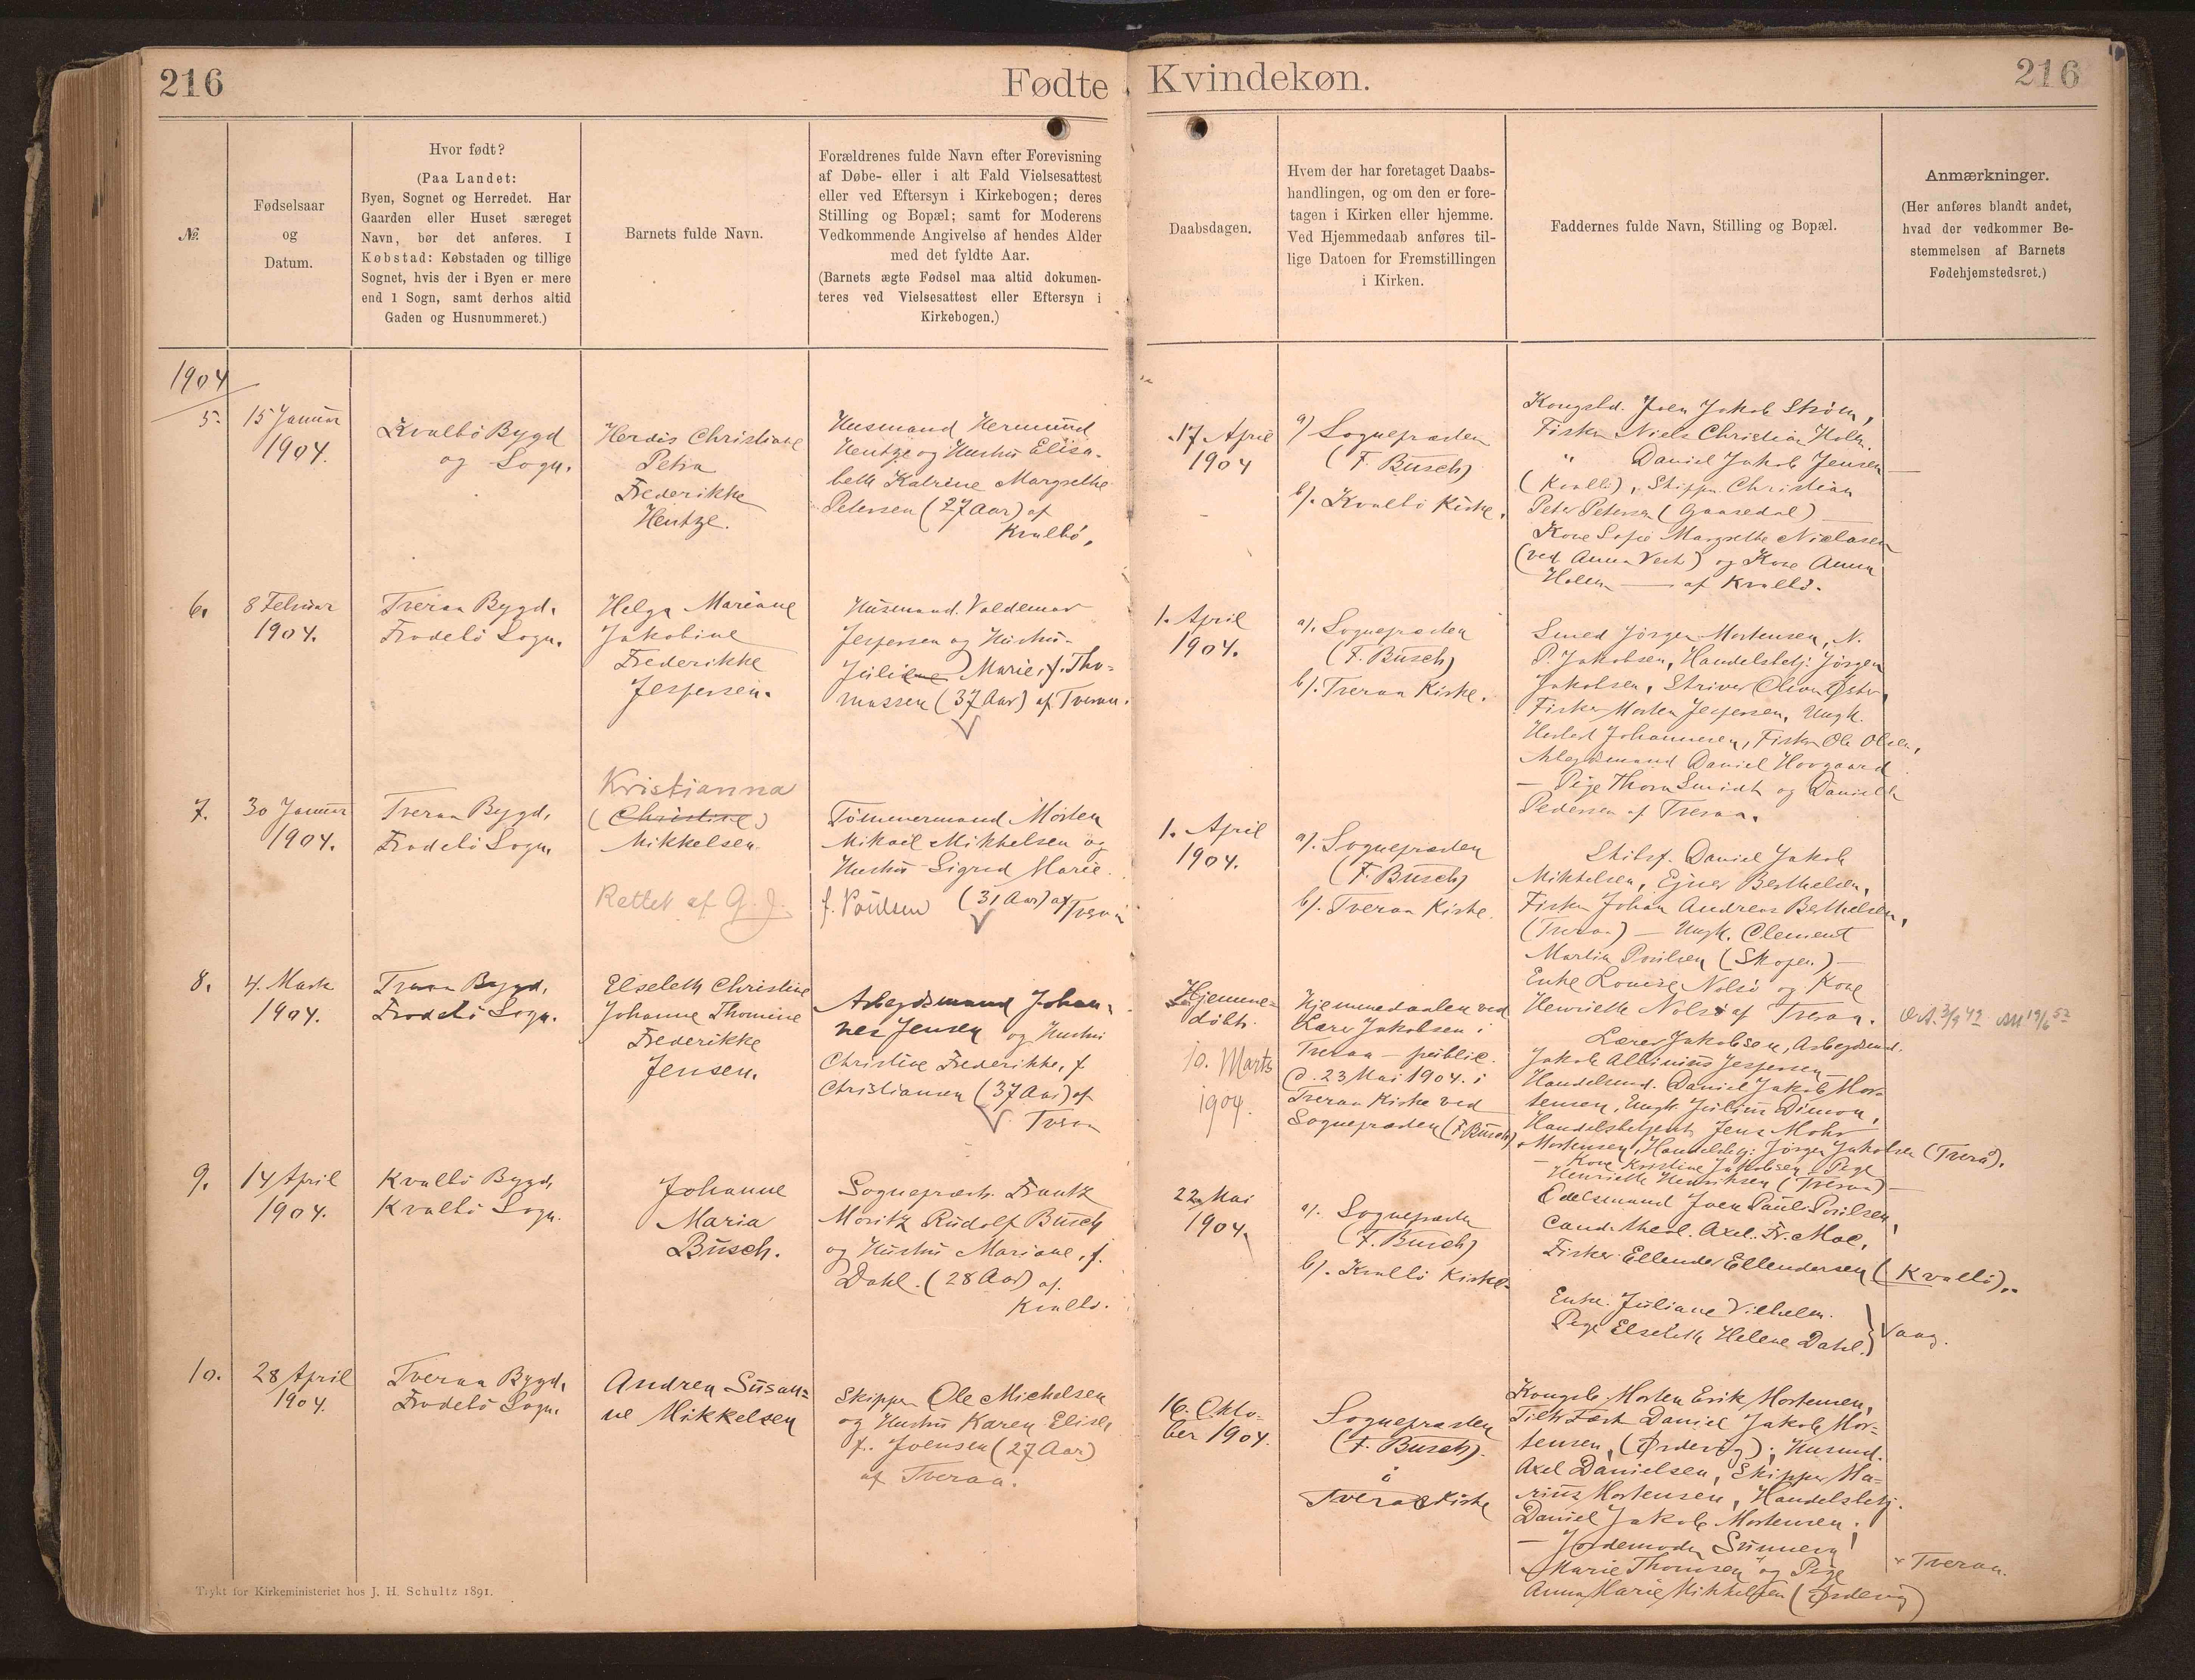 216
Fødte
Kvindekøn.
216
№.
Fødselsaar
og
Datum.
Hvor født?
(Paa Landet:
Byen, Sognet og Herredet. Har
Gaarden eller Huset særeget
Navn, bør det anføres. I
Købstad: Købstaden og tillige
Sognet, hvis der i Byen er mere
end 1 Sogn, samt derhos altid
Gaden og Husnummeret.)
Barnets fulde Navn.
Forældrenes fulde Navn efter Forevisning
af Døbe- eller i alt Fald Vielsesattest
eller ved Eftersyn i Kirkebogen; deres
Stilling og Bopæl; samt for Moderens
Vedkommende Angivelse af hendes Alder
med det fyldte Aar.
(Barnets ægte Fødsel maa altid dokumen-
teres ved Vielsesattest eller Eftersyn i
Kirkebogen.)
Daabsdagen.
Hvem der har foretaget Daabs-
handlingen, og om den er fore-
tagen i Kirken eller hjemme.
Ved Hjemmedaab anføres til-
lige Datoen for Fremstillingen
i Kirken.
Faddernes fulde Navn, Stilling og Bopæl.
Anmærkninger.
(Her anføres blandt andet,
hvad der vedkommer Be-
stemmelsen af Barnets
Fødehjemstedsret.)
1904
5.
15 Januar
1904.
Kvalbø Bygd
og Sogn.
Herdis Christiane
Petra
Frederikke
Hentze.
Husmand Hermund
Hentze og Hustru Elisa-
beth Katrine Margrethe
Petersen (27 Aar) af
Kvalbø.
17 April
1904
a) Sognepræsten
(F. Busch)
b). Kvalbø Kirke.
Kongsbd. Joen Jakob Strøm,
Fisker Niels Christian Holm.
" Daniel Jakob Jensen
(Kvalbø), Skipper Christian
Peter Petersen (Gaasedal)
Kone Sofie Margrethe Niclasen
(ved Anna Vest) og Kone Anna
Holm — af Kvalbø.
6.
8 Februar
1904.
Tveraa Bygd.
Frodebø Sogn.
Helga Mariane
Jakobine
Frederikke
Jespersen.
Husmand. Valdemar
Jespersen og Hustru
Juliane Marie, f. Tho-
massen (37 Aar) af Tveraa.
1. April
1904.
a). Sognepræsten
(F. Busch)
b). Tveraa Kirke.
Smed Jørgen Mortensen, N.
P. Jakobsen, Handelsbetj. Jørgen
Jakobsen, Skriver Oliver Øster,
Fisker Morten Jespersen, Ungk.
Herlof Johannesen, Fisker Ole Olsen,
Arbejdsmand Daniel Hovgaard
— Pige Thora Smidt og Danielle
Pedersen af Tveraa.
7.
30 Januar
1904.
Tveraa Bygd.
Frodebø Sogn.
Kristianna
(Christine)
Mikkelsen
Rettet af G. J.
Tømmermand Morten
Mikael Mikkelsen og
Hustru Sigrid Marie
f. Poulsen (31 Aar) af Tveraa
1. April
1904.
a). Sognepræsten
(F. Busch)
b). Tveraa Kirke.
Skibsf. Daniel Jakob
Mikkelsen, Ejner Berthelsen,
Fisker Johan Andreas Berthelsen,
(Tveraa) — Ungk. Clement
Martin Poulsen (Skopen) —
Enke Louise Nolsø og Kone
Henriette Nolsø af Tveraa.
8.
4. Marts
1904.
Tveraa Bygd.
Frodebø Sogn.
Elsebeth Christine
Johanne Thomine
Frederikke
Jensen.
Arbejdsmand Johan-
nes Jensen og Hustru
Christine Frederikke, f
Christiansen (37 Aar) af
Tveraa
Hjemme-
døbt.
10. Marts
1904.
Hjemmedaaben ved
Lærer Jakobsen i
Tveraa — public.
d. 23 Mai 1904. i
Tveraa Kirke ved
Sognepræsten (F. Busch)
Lærer Jakobsen, Arbejdsmd.
Jakob Albinius Jespersen
Handelsmd. Daniel Jakob Mor-
tensen, Ungk. Julius Dimon,
Handelsbetjent Jens Mohr
Mortensen, Handelsbtj. Jørgen Jakobsen (Tverå).
— Kone Kristine Jakobsen, Pige
Henriette Henriksen (Tveraa) —
9.
14 April
1904.
Kvalbø Bygd.
Kvalbø Sogn.
Johanne
Maria
Busch.
Sognepræst. Frantz
Moritz Rudolf Busch
og Hustru Mariane, f.
Dahl. (28 Aar) af
Kvalbø.
22 Mai
1904.
a). Sognepræsten
(F. Busch)
b). Kvalbø Kirke.
Odelsmand Joen Paul Poulsen,
Cand. theol. Axel. Fr. Moe,
Fisker Ellender Ellendersen (Kvalbø).
Enke. Juliane Vilhelm.
Pige Elsebeth Helene Dahl. } Vaag.
10.
28 April
1904.
Tveraa Bygd.
Frodebø Sogn.
Andrea Susan-
ne Mikkelsen
Skipper Ole Michelsen
og Hustru Karen Elise
f. Joensen (27 Aar)
af Tveraa.
16. Okto-
ber 1904.
Sognepræsten
(F. Busch).
i
Tveraa Kirke
Kongsb. Morten Erik Mortensen,
Daniel Jakob Mor-
tensen, (Ørdevig); Husmd.
Axel Danielsen, Skipper Ma-
rius Mortensen, Handelsbetj.
Daniel Jakob Mortensen.
— Jordemoder Sunneva
Marie Thomsen og Pige
Anna Marie Mikkelsen (Ørdevig)
Tveraa.
Trykt for Kirkeministeriet hos J. H. Schultz 1891.